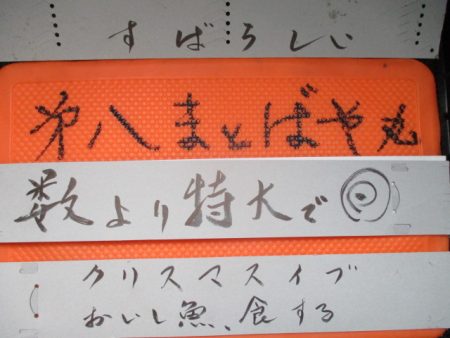 すばらしい
第八まとばや丸
数より特大で回
クリスマスイブ
おいし魚、食する